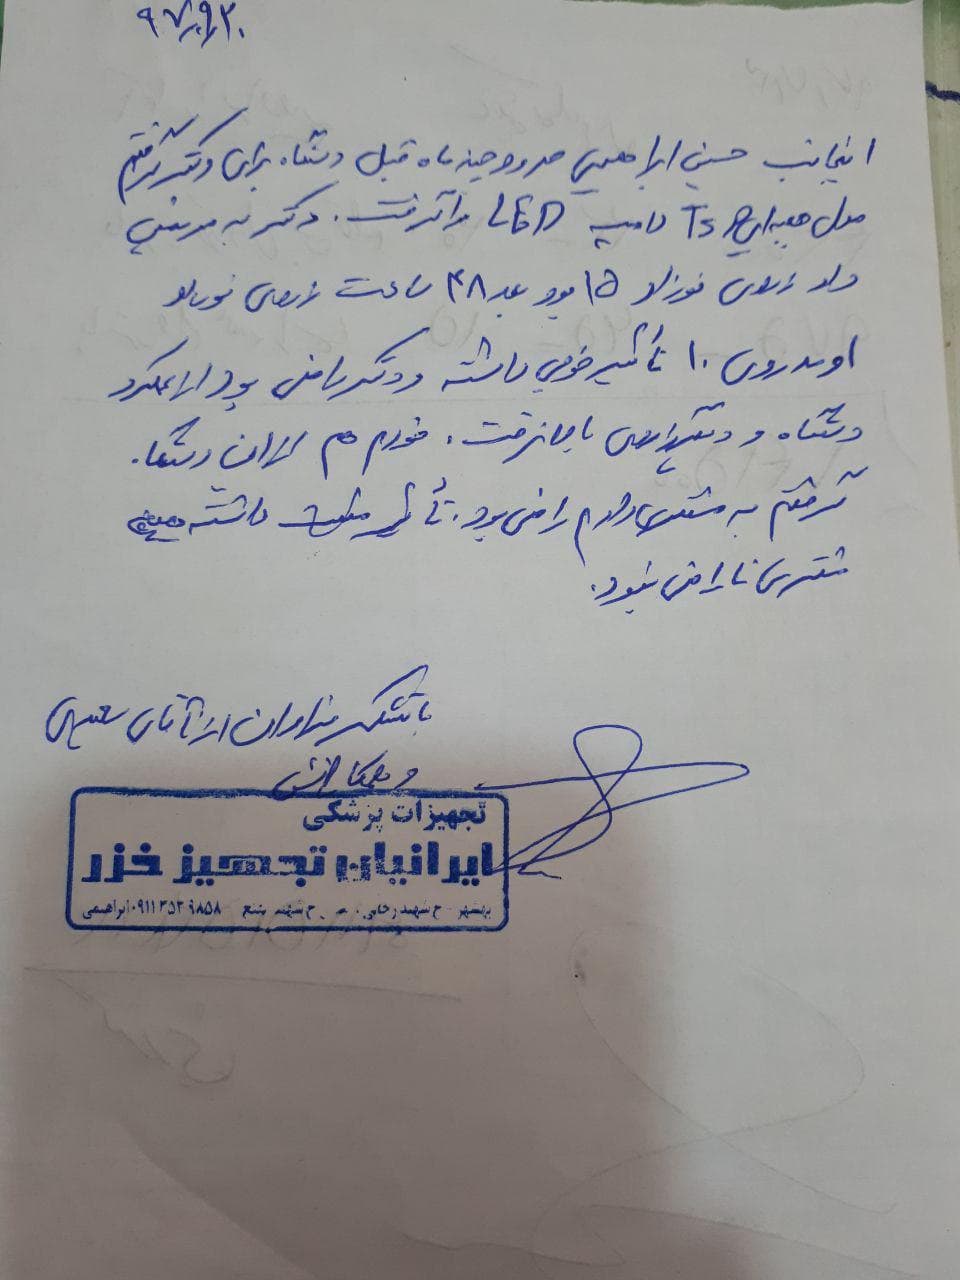 ۹۷/۹/۲۰
اینجانب حسین ابراهیمی حدود چند ماه قبل دستگاه برای دکتر گرفتم
مدل Ts لامپ LED را گرفت. دکتر به مریض
داد زردی نوزاد ۱۵ بود بعد ۴۸ ساعت زردی نوزاد
اومد روی ۱۰ تأثیر خوبی داشته و دکتر راضی بود از عملکرد
دستگاه و دستگاه زردی را پذیرفت. خودم هم از این دستگاه
گرفتم به مشتری دادم راضی بود. تأثیر مثبت داشته
مشتری ناراضی نبود.
با تشکر فراوان از آقای
و همکارانش
تجهیزات پزشکی
ایرانیان تجهیز خزر
بهشهر - خ شهید رجایی - خ شهید ۰۹۱۱۳۵۳۹۸۵۸ ابراهیمی